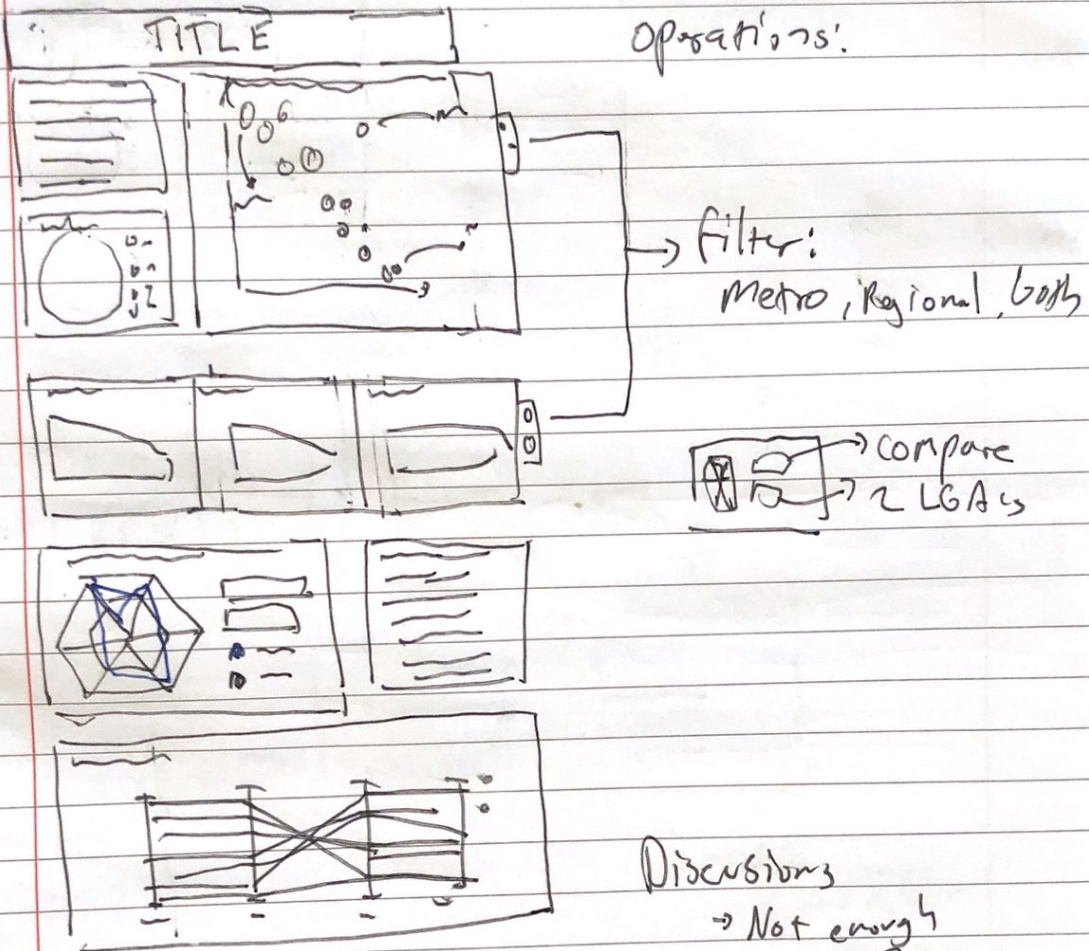 TITLE
Operations:
Filter:
Metro, Regional, Both
Compare
2 LGAs
Discussions
→ Not enough